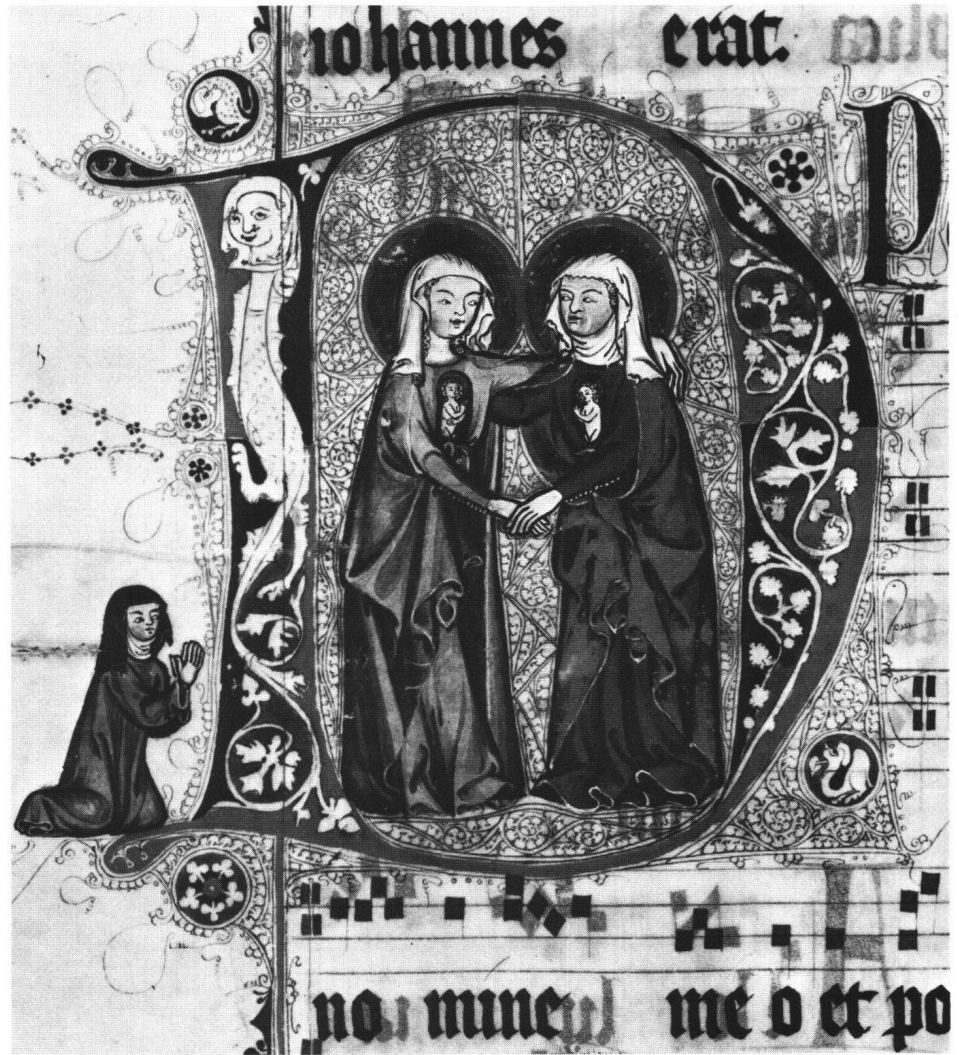 iohannes erat.
D P
no mine me o et po